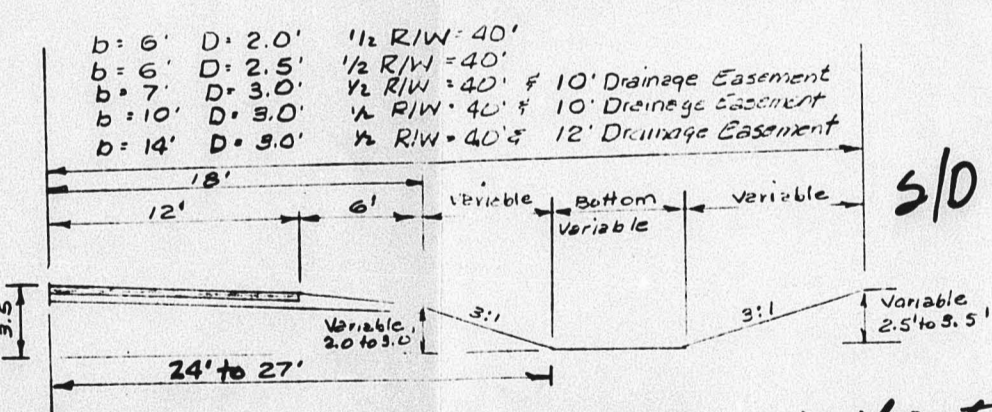 b = 6' D = 2.0' 1/2 R/W = 40'
b = 6' D = 2.5' 1/2 R/W = 40'
b = 7' D = 3.0' 1/2 R/W = 40' & 10' Drainage Easement
b = 10' D = 3.0' 1/2 R/W = 40' & 10' Drainage Easement
b = 14' D = 3.0' 1/2 R/W = 40' & 12' Drainage Easement
S/D
18'
12'
6'
Variable
Bottom
Variable
Variable
3.5
Variable
2.0 to 3.0
3:1
3:1
Variable
2.5' to 3.5'
24' to 27'